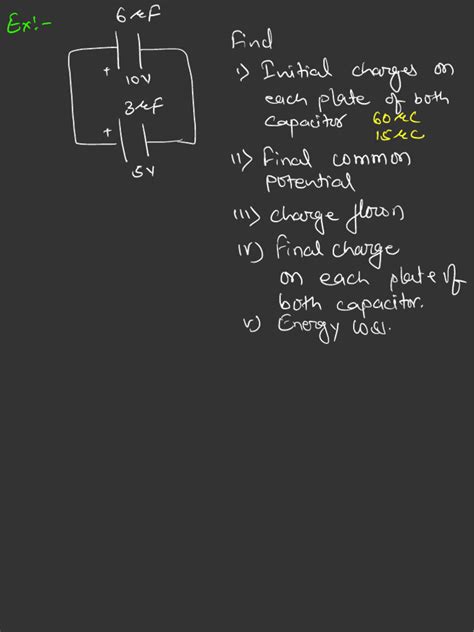 Ex:-
6 μF
+
10V
3μF
+
5V
Find
i) Initial charges on
each plate of both
capacitor 60μC
15μC
ii) Final common
potential
iii) charge flown
iv) Final charge
on each plate of
both capacitor.
v) Energy loss.